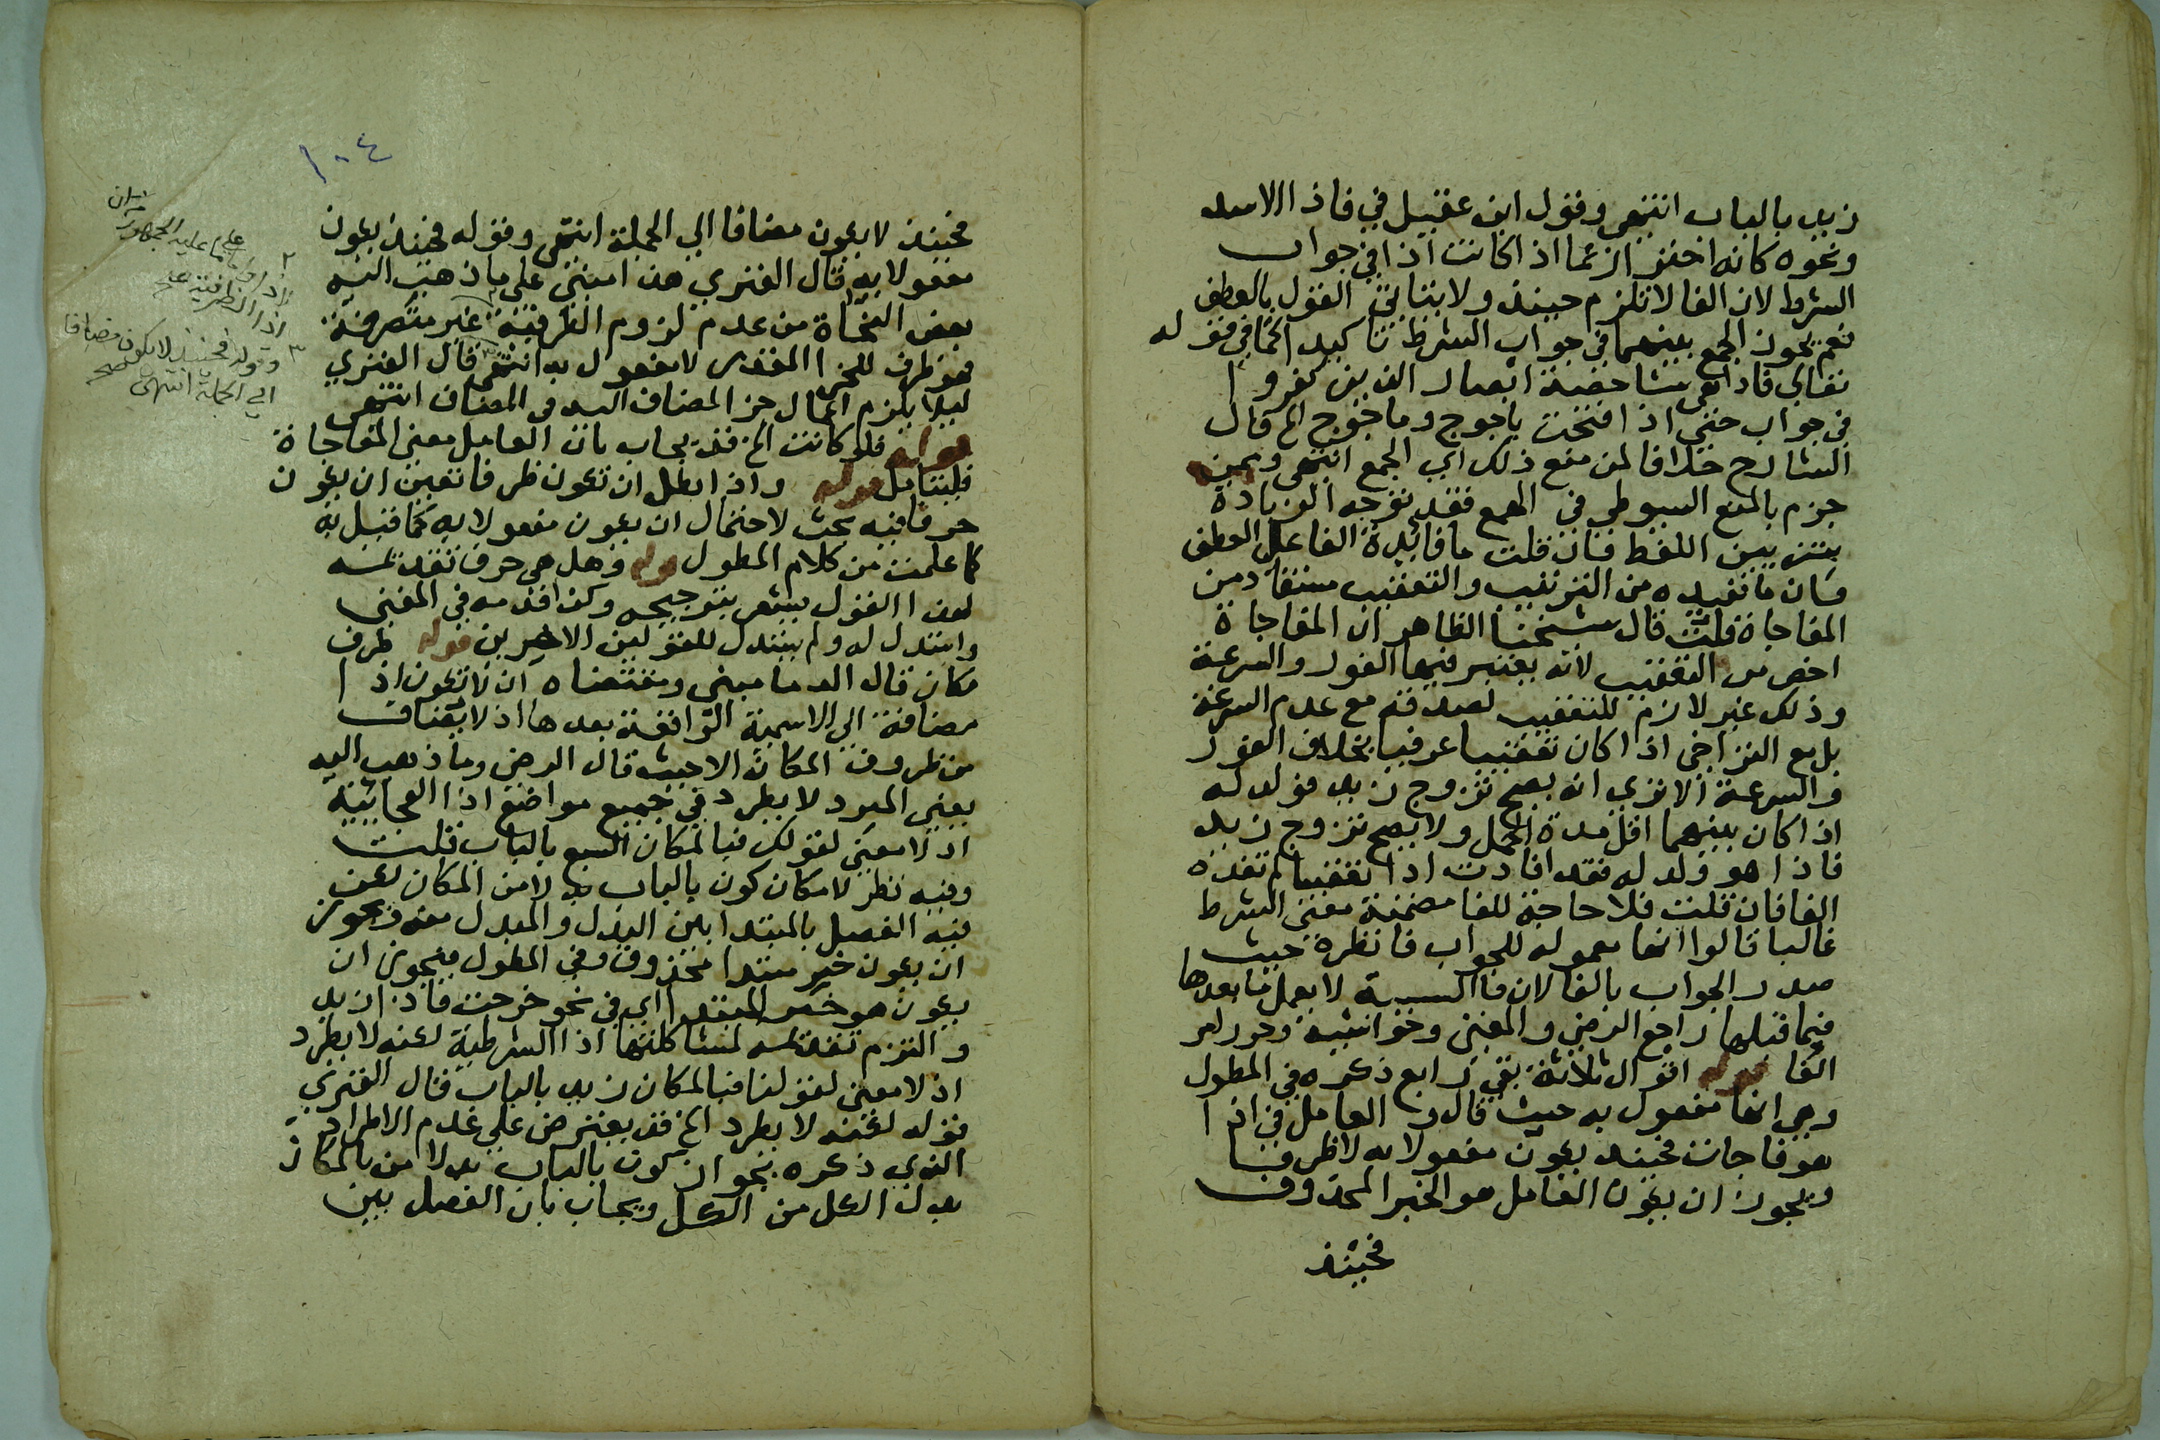 زيد بالباب انتهى وقول ابن عقيل في فاذا الاسد
ونحوه كانه احترازا عما اذا كانت اذا في جواب
الشرط لان الفا لا تلزم حينئذ ولا يتاتى القول بالعطف
نعم يجوز الجمع بينهما في جواب الشرط تاكيدا كما في قوله
تعالى فاذا هى شاخصة ابصار الذين كفروا
في جواب حتى اذا افتحت ياجوج وماجوج الخ قال
الشارح خلافا لمن منع ذلك اي الجمع انتهى وممن
جزم بالمنع السيوطي في الهمع فقد توجه الزيادة
بتزيين اللفظ فان قلت ما فائدة الفا على العطف
فان ما تفيده من الترتيب والتعقيب مستفاد من
المفاجاة قلت قال شيخنا الظاهر ان المفاجاة
اخص من التعقيب لانه يعتبر فيها الفور والسرعة
وذلك غير لازم للتعقيب لصدقه مع عدم السرعة
بل مع التراخي اذا كان تعقيبا عرفيا بخلاف الفور
والسرعة الا ترى انه يصح تزوج زيد فولد له
اذا كان بينهما اقل مدة الحمل ولا يصح تزوج زيد
فاذا هو ولد له فقد افادت اذا تعقيبا لم تفده
الفا فان قلت فلا حاجة للفا مضمنة معنى الشرط
غالبا قالوا انها معمولة للجواب فانظره حيث
صدر الجواب بالفا لان فا السببية لا يعمل ما بعدها
فيما قبلها راجع الرضي والمغني وحواشيه وحرر امر
الفا قوله اقوال ثلاثة بقي رابع ذكره في المطول
وهي انها مفعول به حيث قال و العامل في اذا
هو فاجات فحينئذ يكون مفعولا به لا ظرفا
ويجوز ان يكون العامل هو الخبر المحذوف
فحينئذ
١٠٤
فحينئذ لا يكون مضافا الي الجملة انتهى وقوله فحينئذ يكون
مفعولا به قال الفنري هذا مبني على ما ذهب اليه
بعض النحاة من عدم لزوم الظرفية غير متصرفة
فهو ظرف للخبر المقدر لا مفعول به انتهى قال الفنري
ليلا يلزم اعمال جز المضاف اليه في المضاف انتهى
قوله فلو كانت الخ قد يجاب بان العامل معنى المفاجاة
فليتامل قوله واذا بطل ان تكون ظرفا تعين ان يكون
حرفا فيه بحث لاحتمال ان يكون مفعولا به كما قيل به
كما علمت من كلام المطول قوله وهل هي حرف تقديمه
لهذا القول يشعر بترجيحه وكذا قدمه في المغني
واستدل له ولم يستدل للقولين الاخيرين قوله ظرف
مكان قال الدماميني ومقتضاه ان لا تكون اذا
مضافة الى الاسمية الواقعة بعدها اذ لا يضاف
من ظروف المكان الا حيث قال الرضي وما ذهب اليه
يعني المبرد لا يطرد في جميع مواضع اذا الفجائية
اذ لا معنى لقولك فبالمكان السبع بالباب قلت
وفيه نظر لامكان كون بالباب بدلا من المكان لكن
فيه الفصل بالمبتدا بين البدل والمبدل منه ويجوز
ان يكون خبر مبتدا محذوف وفي المطول فيجوز ان
يكون هو خبر المبتدا اي في نحو خرجت فاذا زيد
والتزم تقديمه لمشاكلتها اذا الشرطية لكنه لا يطرد
اذ لا معنى لقولنا فبالمكان زيد بالباب قال الفنري
قوله لكنه لا يطرد الخ قد يعترض على عدم الاطراد
الذي ذكره بجواز كون بالباب بدلا من بالمكان
بدل الكل من الكل ويجاب بان الفصل بين
٢
على ما عليه الجمهور
اذا الظرفية
٣ وقوله فحينئذ لا يكون مضافا
الى الجملة انتهى